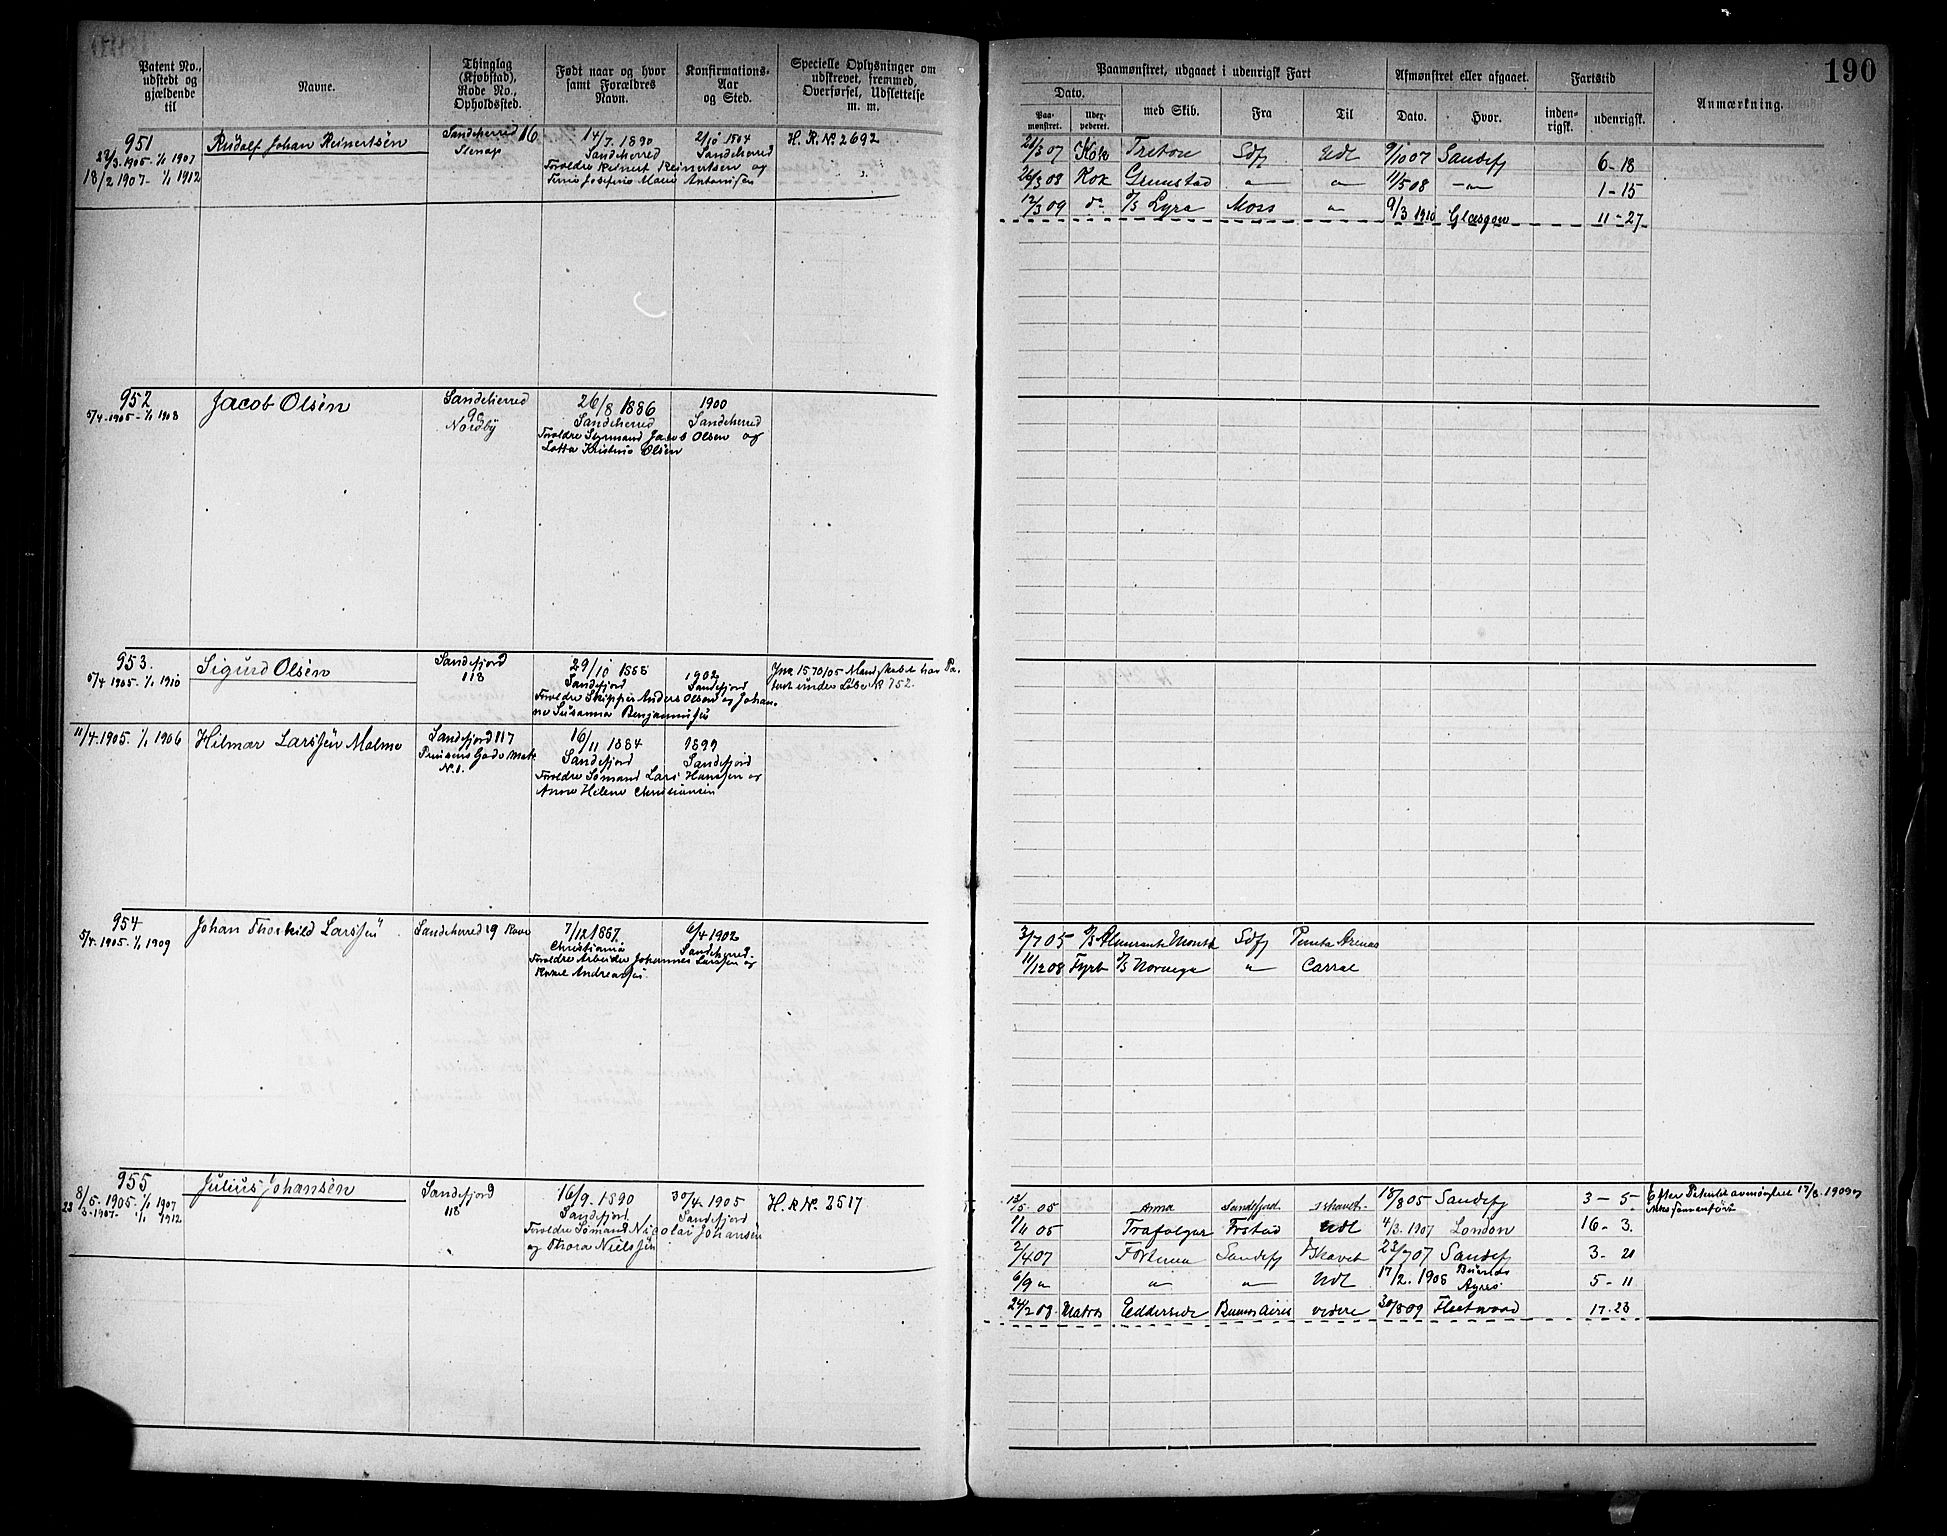 190
Patent No., udstedt og gjældende til
Navne.
Thinglag (Kjøbstad), Rode No., Opholdssted.
Født naar og hvor samt Forældres Navn.
Konfirmations-Aar og Sted.
Specielle Oplysninger om udskrevet, fremmed, Overførsel, Udslettelse m. m.
Paamønstret, udgaaet i udenrigsk Fart
Dato.
Paa-mønstret.
med Skib.
Fra
Til
Afmønstret eller afgaaet.
Dato.
Hvor.
Fartstid
inden-rigsk.
udenrigsk.
Anmærkning.
951
Rudolf Johan Reinertsen
Sandeherred 16
14/7. 1890
Sandeherred
Sandeherred
H. R. No 2692
23/3. 1905 - 1/1 1907
18/2 1907 - 1/1 1912
Forældre Reinert Reinertsen og
Josefine Marie Antonisen
07 Kok Triton Sdfj Udl 9/10 07 Sandefj 6-18
26/3 08 Kok Grimstad " " 11/5 08 -"- 1-15
12/3 09 do Lyra Moss " 9/3 1910 Glasgow 11-27
952
Jacob Olsen
5/4. 1905 - 1/1 1908
Sandeherred
Nordby
26/8 1886
Sandeherred
1900
Sandeherred
Forældre Jacob Olsen og
Lotta Kristine Olsen
953.
Sigurd Olsen
5/4 1905 - 1/1 1910
Sandefjord
118
29/10 1888
Sandefjord
1902
Sandefjord
Jnr 1570/05 har Pa-
tent under Løbe N 752.
Forældre Skipper Anders Olsen og Johan-
ne Susanna
11/4. 1905. 1/1 1906
Hilmar Larssen Malmo
Sandefjord 117
Prinsens Gade
No 1.
16/11 1884
Sandefjord
1899
Sandefjord
Forældre Sømand Lars Hanssen og
Anne Helene Christiansen
954
Johan Thorkild Larssen
5/4. 1905 - 1/1 1909
Sandeherred 19
7/12 1887
Christiania
6/4 1902
Sandeherred
Forældre Arbeider Johannes Larssen og
Andreassen
3/7 05 Sdfj Punta Arenas
11/12 08 Fyrb Norvega " Corral
955
Julius Johansen
8/5 - 1905 - 1/1 1907
1907 - 1/1 1912
Sandefjord
118
16/9. 1890
Sandefjord
30/4. 1905
Sandefjord
H. R No. 2517
Forældre Sømand Nicolai Johansen
og Thora Nielssen
05 Anna Sandefjord 18/8 05 Sandefj 3 - 5
05 Trafalgar Frstad Udl 1907 London 16 - 3
2/4 07 Sandefj 07 Sandefj 3 -
6/9 " " " Udl 17/2. 1908 Buenos Ayres 5 - 11
Matros Edderside Buenos Aires videre 30/8 09 Fleetwood 17-23